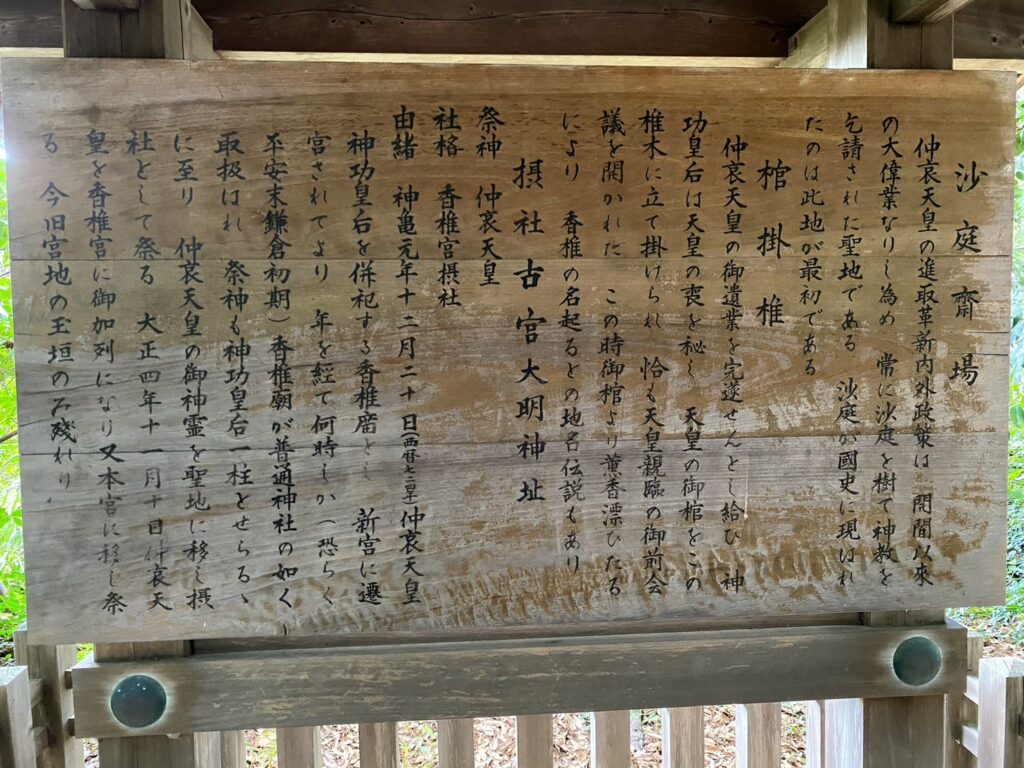 沙庭齋場
仲哀天皇の進取革新内外政策は 開闢以來
の大偉業なりし為め 常に沙庭を樹て神教を
乞請された聖地である 沙庭が國史に現はれ
たのは此地が最初である
棺掛椎
仲哀天皇の御遺業を完遂せんとし給ひ 神
功皇后は天皇の喪を秘し 天皇の御棺をこの
椎木に立て掛けられ 恰も天皇親臨の御前会
議を開かれた この時御棺より薫香漂ひたる
により 香椎の名起るとの地名伝説もあり
摂社古宮大明神址
祭神 仲哀天皇
社格 香椎宮摂社
由緒 神亀元年十二月二十日(西暦七二四年)仲哀天皇
神功皇后を併祀する香椎廟とし 新宮に遷
宮されてより 年を経て何時しか(恐らく
平安末鎌倉初期)香椎廟が普通神社の如く
取扱はれ 祭神も神功皇后一柱とせらるゝ
に至り 仲哀天皇の御神霊を聖地に移し摂
社として祭る 大正四年十一月十日仲哀天
皇を香椎宮に御加列になり又本宮に移し祭
る 今旧宮地の玉垣のみ残れり